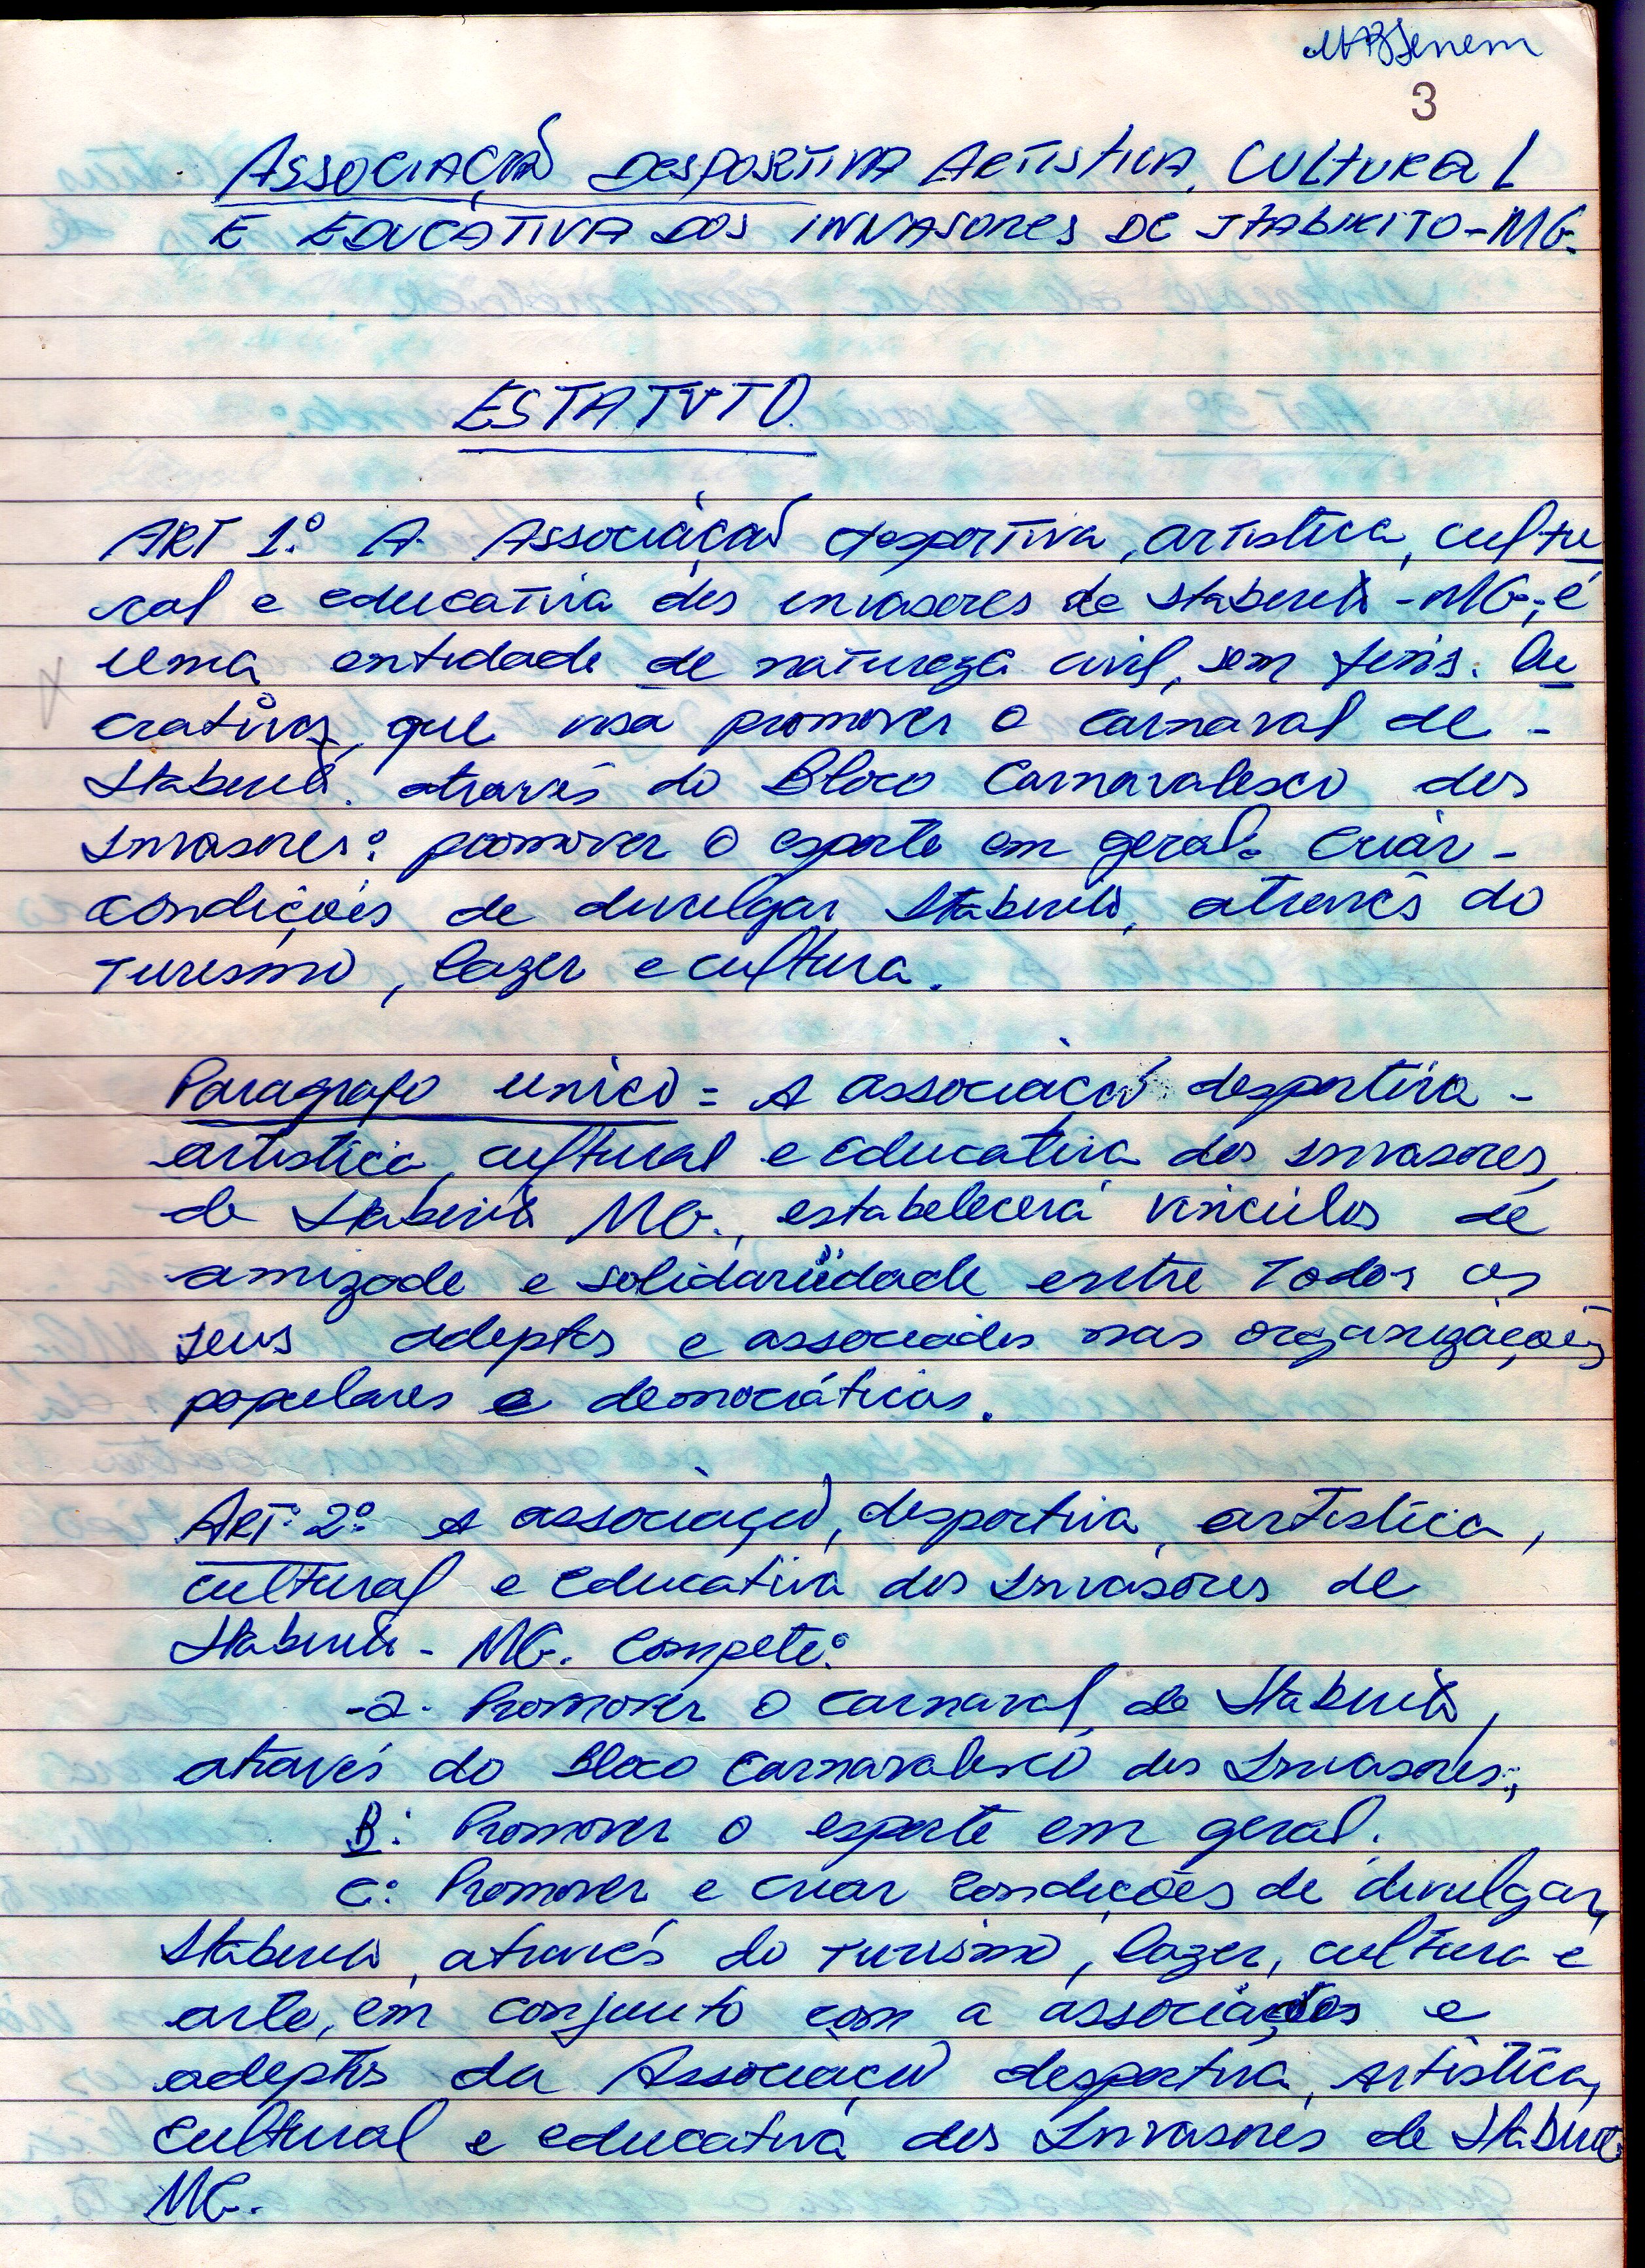 3
ASSOCIAÇÃO DESPORTIVA ARTISTICA, CULTURAL
E EDUCATIVA DOS INVASORES DE ITABIRITO-MG.
ESTATUTO.
ART 1º. A Associação desportiva, artistica, cultu
ral e educativa dos invasores de Itabirito-MG-; é
uma entidade de natureza civil, sem fins. lu
crativos, que visa promover o carnaval de -
Itabirito. através do Bloco Carnavalesco dos
Invasores: promover o esporte em geral. criar -
condições de divulgar Itabirito, através do
Turismo, lazer e cultura.
Paragrafo unico = A associação desportiva -
artistica, cultural e educativa dos invasores,
de Itabirito MG., estabelecerá vinculos de
amizade e solidariedade entre Todos os
seus adeptos e associados nas organizações
populares e democráticas.
ART: 2º: A associação, desportiva, artistica,
cultural e educativa dos Invasores de
Itabirito - MG. Compete:
-a- Promover o carnaval, de Itabirito,
através do Bloco Carnavalesco dos Invasores:;
B: Promover o esporte em geral.
C: Promover e criar condições de divulgar,
Itabirito, através do Turismo, lazer, cultura e
arte, em conjunto com a associações e
adeptos da Associação desportiva, artistica,
cultural e educativa dos Invasores de Itabirito
MG.